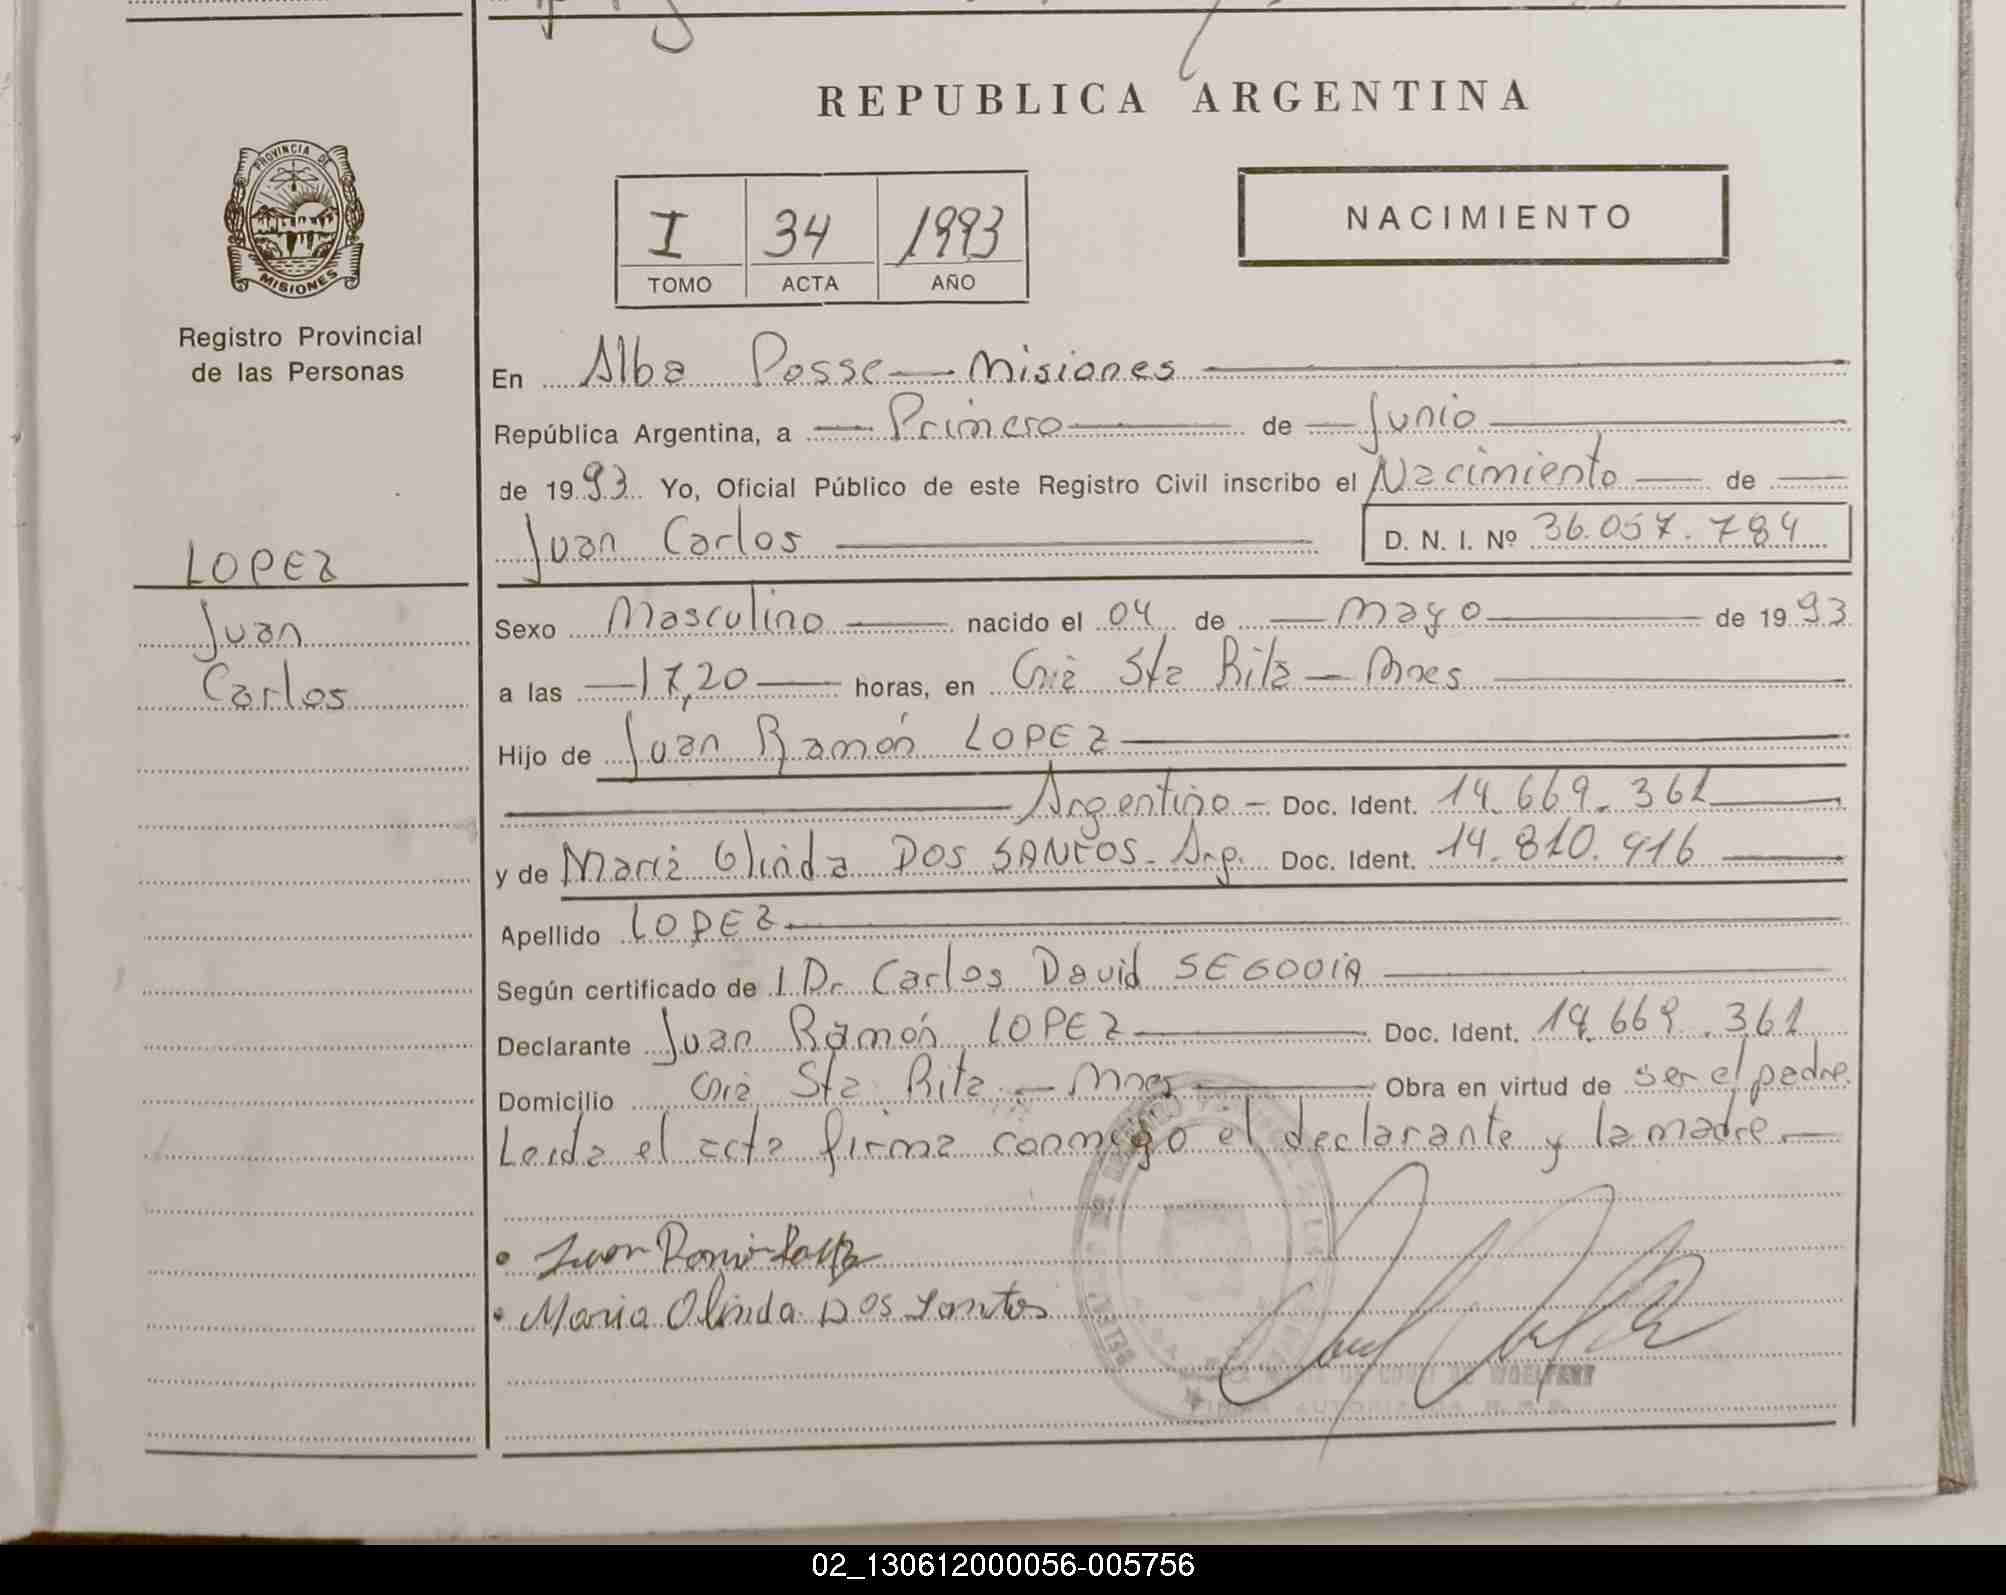 REPUBLICA ARGENTINA
PROVINCIA DE
MISIONES
Registro Provincial
de las Personas
I 34 1993
TOMO ACTA AÑO
NACIMIENTO
LOPEZ
Juan
Carlos
En Alba Posse — Misiones
República Argentina, a — Primero — de — Junio
de 1993 Yo, Oficial Público de este Registro Civil inscribo el Nacimiento — de —
Juan Carlos — D. N. I. Nº 36.057.784
Sexo Masculino — nacido el 04 de — mayo — de 1993
a las — 17,20 — horas, en Cnia Sta Rita — Mnes
Hijo de Juan Ramón LOPEZ
Argentino - Doc. Ident. 14.669.361
y de María Olinda DOS SANTOS - Arg. Doc. Ident. 14.810.916
Apellido LOPEZ
Según certificado de l Dr Carlos David SEGOVIA
Declarante Juan Ramón LOPEZ — Doc. Ident. 14.669.361
Domicilio Cnia Sta Rita — Mnes — Obra en virtud de ser el padre.
Leida el acta firma conmigo el declarante y la madre. —
Juan Ramón
Maria Olinda Dos Santos
02_130612000056-005756